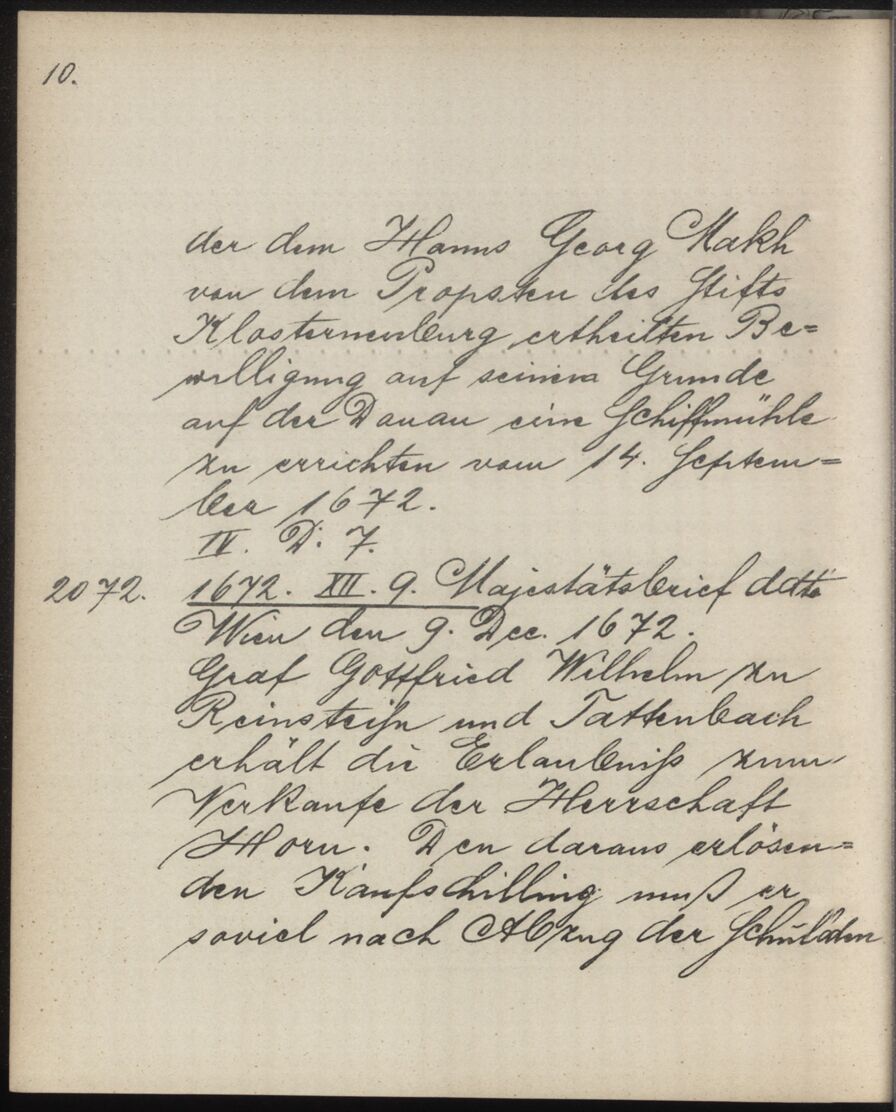 10.
der dem Hanns Georg Makh
von dem Propsten des Stifts
Klosterneuburg ertheilten Be=
willigung auf seinem Grunde
auf der Donau eine Schiffmühle
zu errichten vom 14. Septem=
ber 1672.
IV. D. 7.
2072. 1672. XII. 9. Majestätsbrief ddto
Wien den 9. Dec. 1672.
Graf Gottfried Wilhelm zu
Reinstein und Tattenbach
erhält die Erlaubniß zum
Verkaufe der Herrschaft
Horn. Den daraus erlösen=
den Kaufschilling muß er
soviel nach Abzug der Schulden